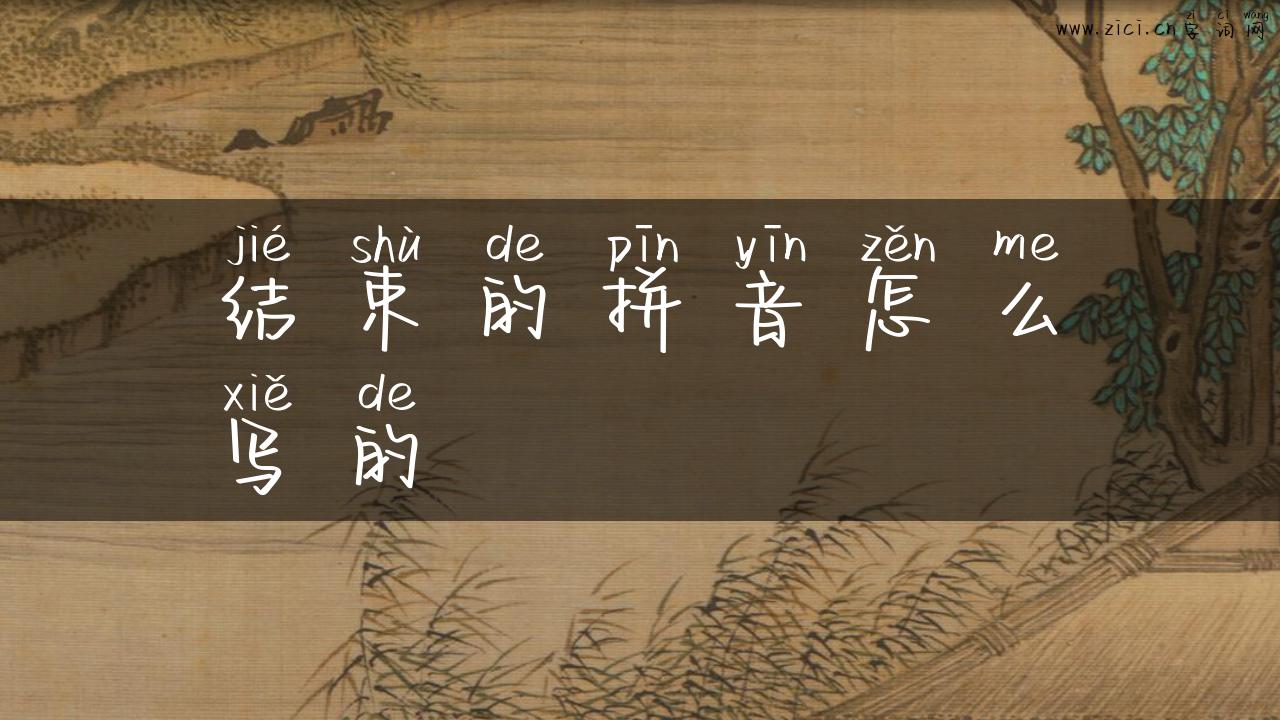 zì cí wǎng
www.zici.cn字词网
jié shù de pīn yīn zěn me
结束的拼音怎么
xiě de
写的